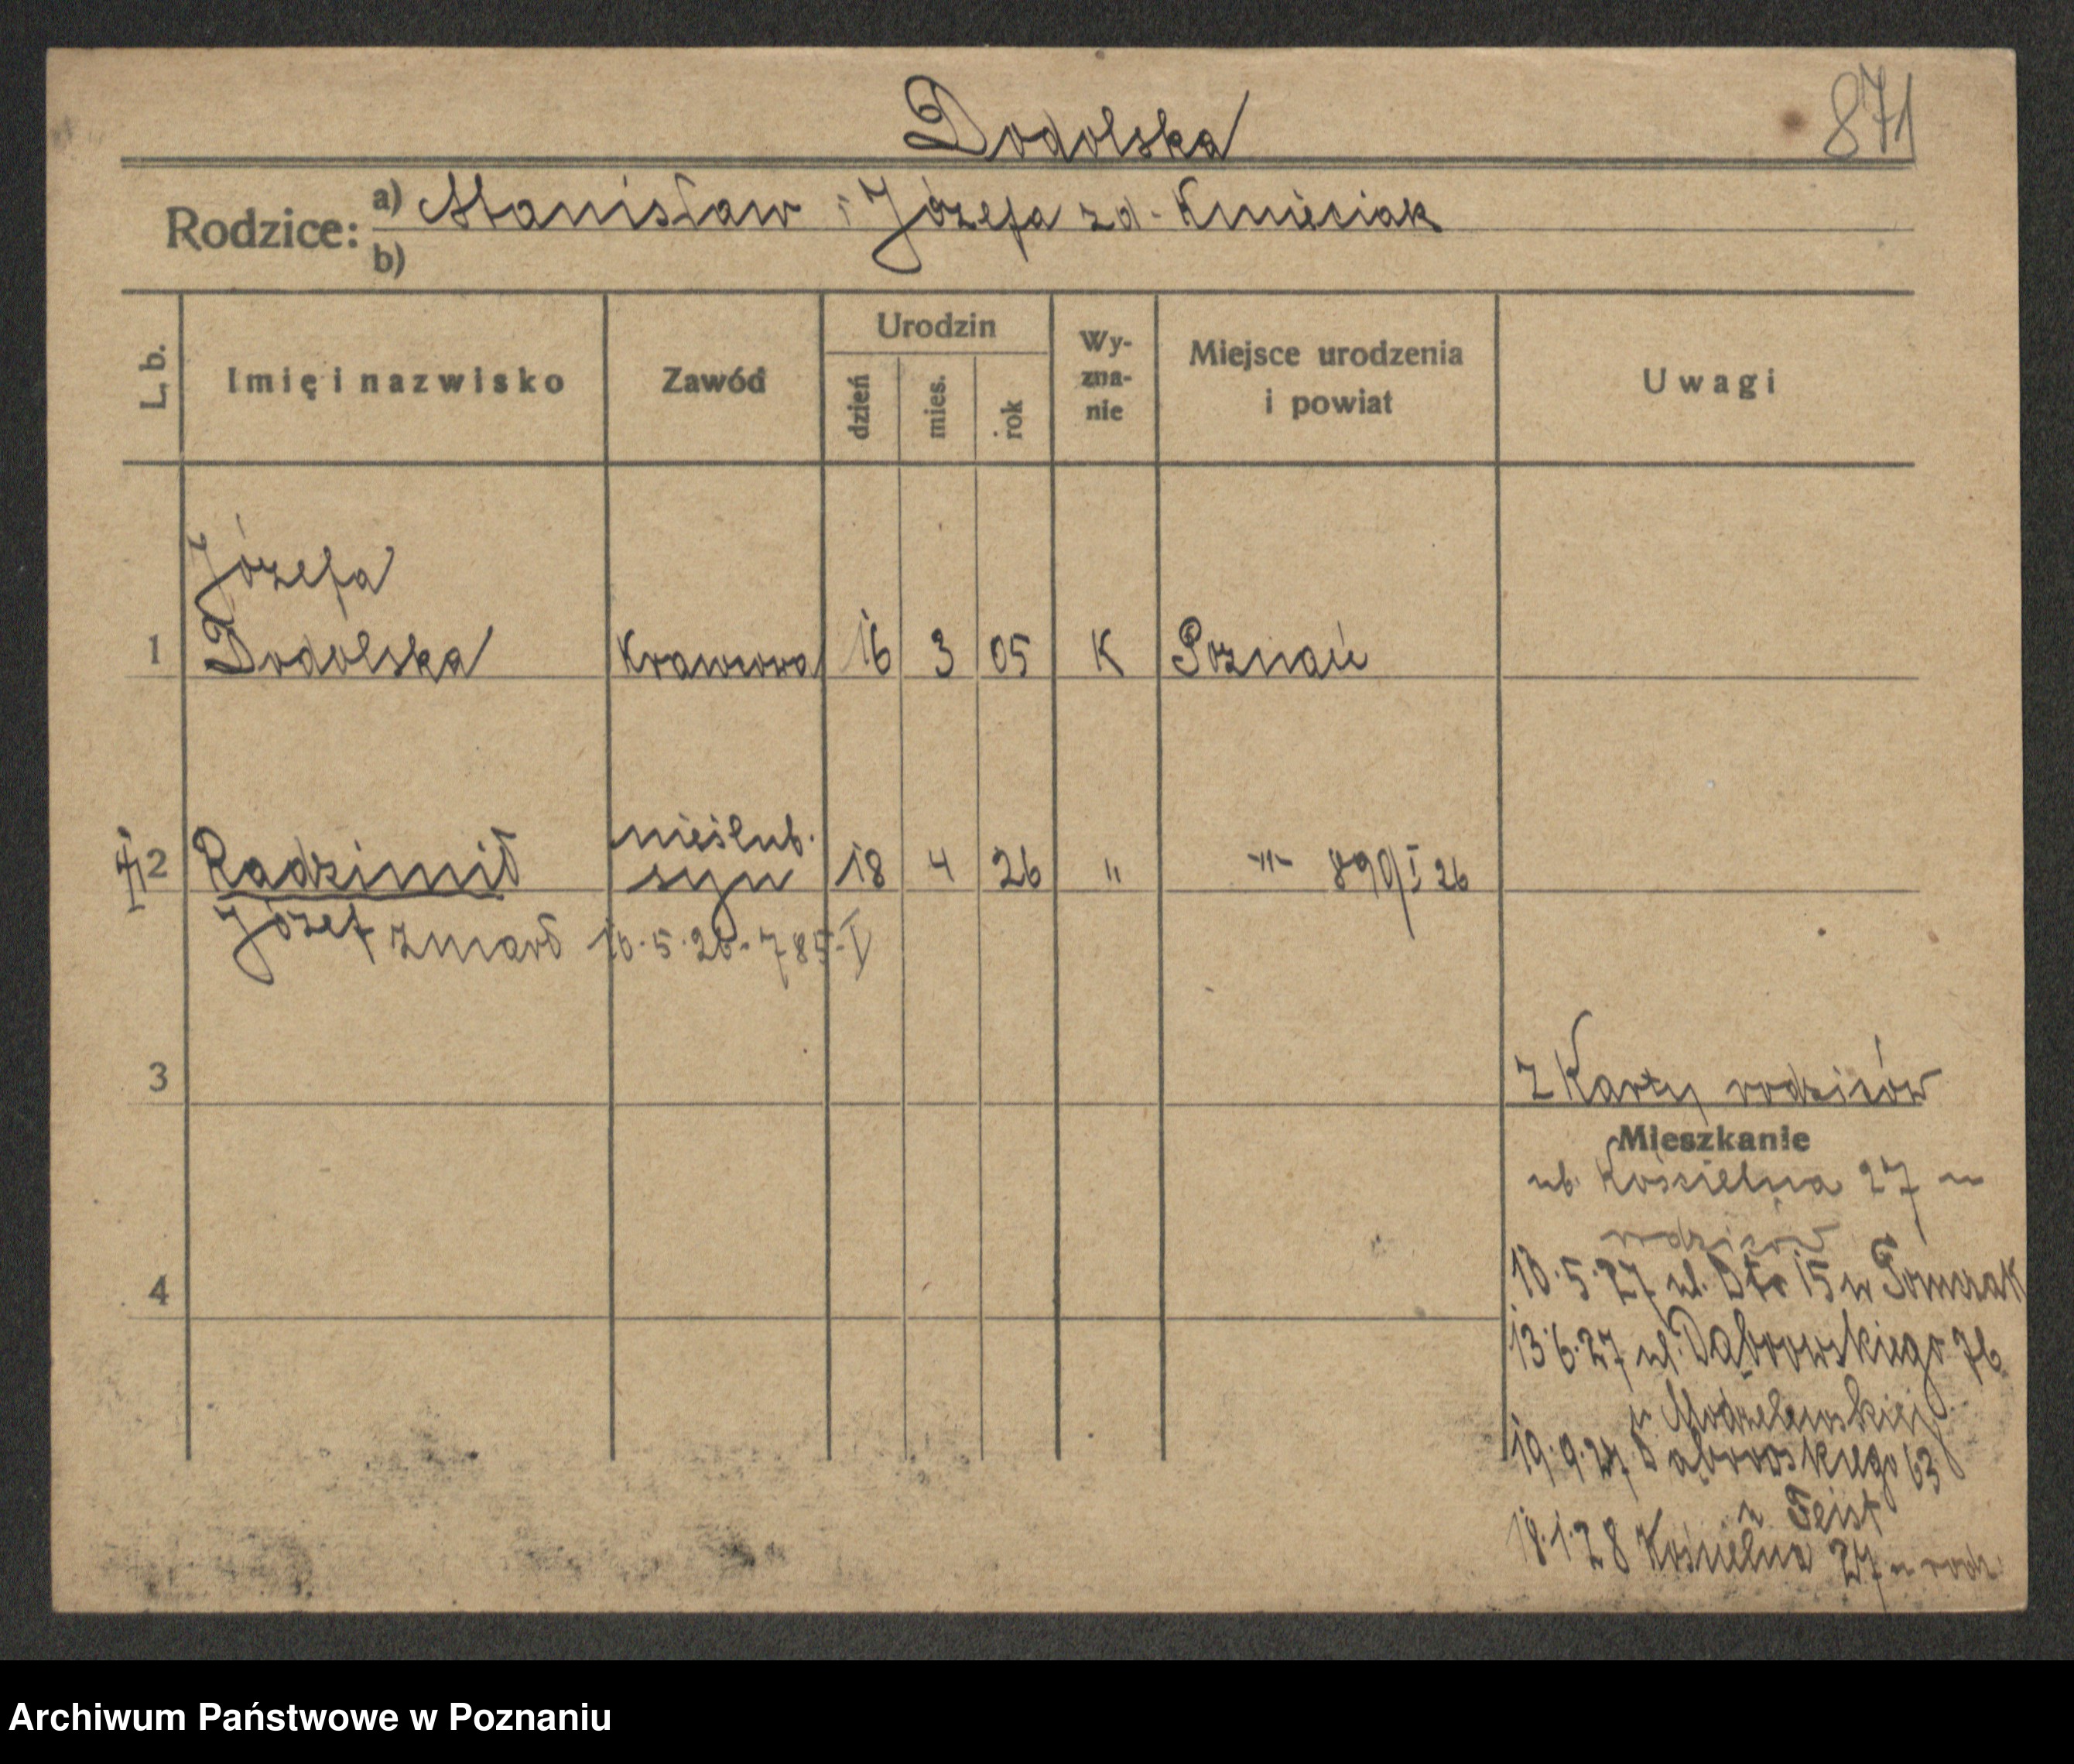 Dodolska
871
Rodzice: a) Stanisław i Józefa zd. Kmieciak
b)
L. b. Imię i nazwisko Zawód Urodzin dzień mies. rok Wyznanie Miejsce urodzenia i powiat Uwagi
Józefa
1 Dodolska Krawcowa 16 3 05 K Poznań
nieślub.
2 Radzimił syn 18 4 26 " -"- 890/I 26
Józef zmarł 10.5.26. 785-I
3
Z Karty rodziców
Mieszkanie
ul. Kościelna 27 u
rodziców
4
10.5.27 ul. 15 u Tomczak
13.6.27 ul. Dąbrowskiego 76
u Modzelewskiej
19.9.27 Dąbrowskiego 63
u Feist
18.1.28 Kościelna 27 u rodz.
Archiwum Państwowe w Poznaniu